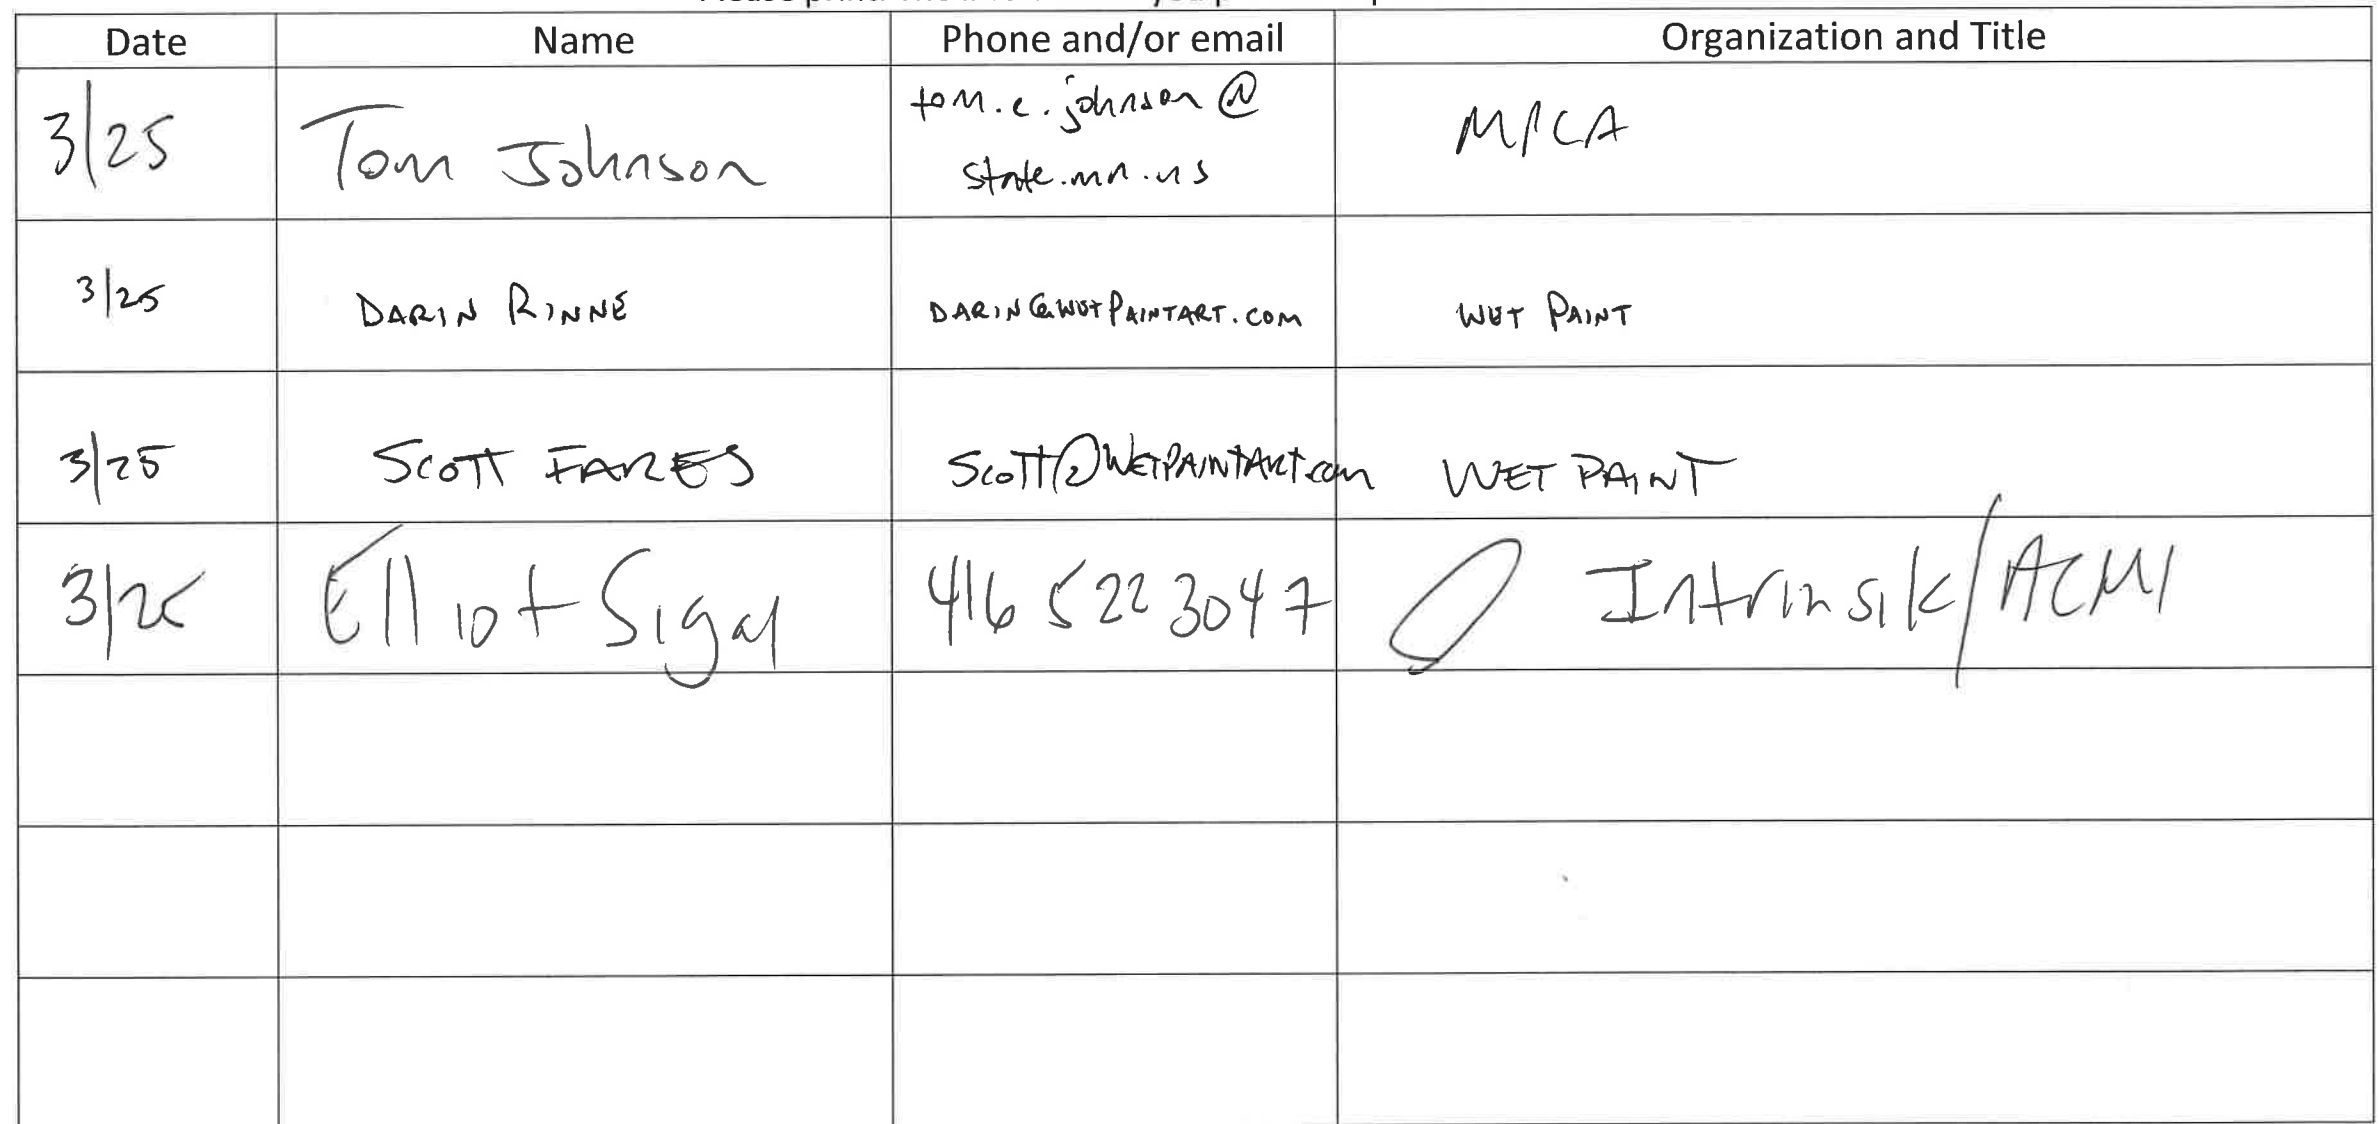 Date Name Phone and/or email Organization and Title
3/25 Tom Johnson tom.e.johnson@ MPCA
state.mn.us
3/25 DARIN RINNE DARIN@WETPAINTART.COM WET PAINT
3/25 SCOTT FARES SCOTT@WETPAINTART.com WET PAINT
3/25 Elliot Sigal 416 522 3047 Intrinsik/ACMI